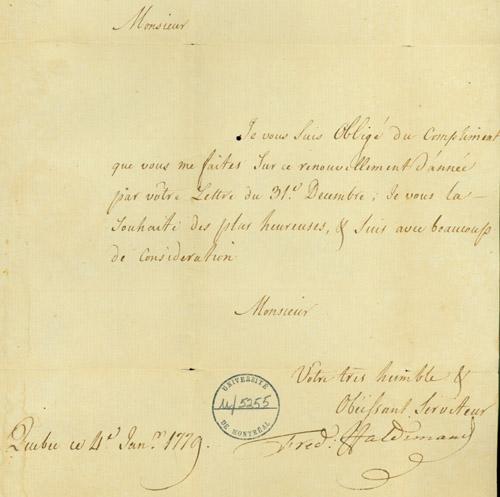 Monsieur
Je vous suis Obligé du Compliment
que vous me faites Sur ce renouvellement d'année
par vôtre Lettre du 31.e Decembre; Je vous la
Souhaite des plus heureuses, & suis avec beaucoup
de Consideration
Monsieur
Votre très humble &
Obeissant Serviteur
Fred: Haldimand
Quebec ce 4e Janr. 1779.
UNIVERSITÉ
U/5255
DE MONTRÉAL